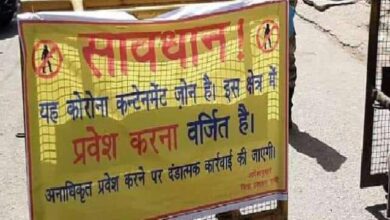 सावधान !
यह कोरोना कन्टेनमेंट ज़ोन है। इस क्षेत्र में
प्रवेश करना वर्जित है।
अनाधिकृत प्रवेश करने पर दंडात्मक कार्रवाई की जाएगी।